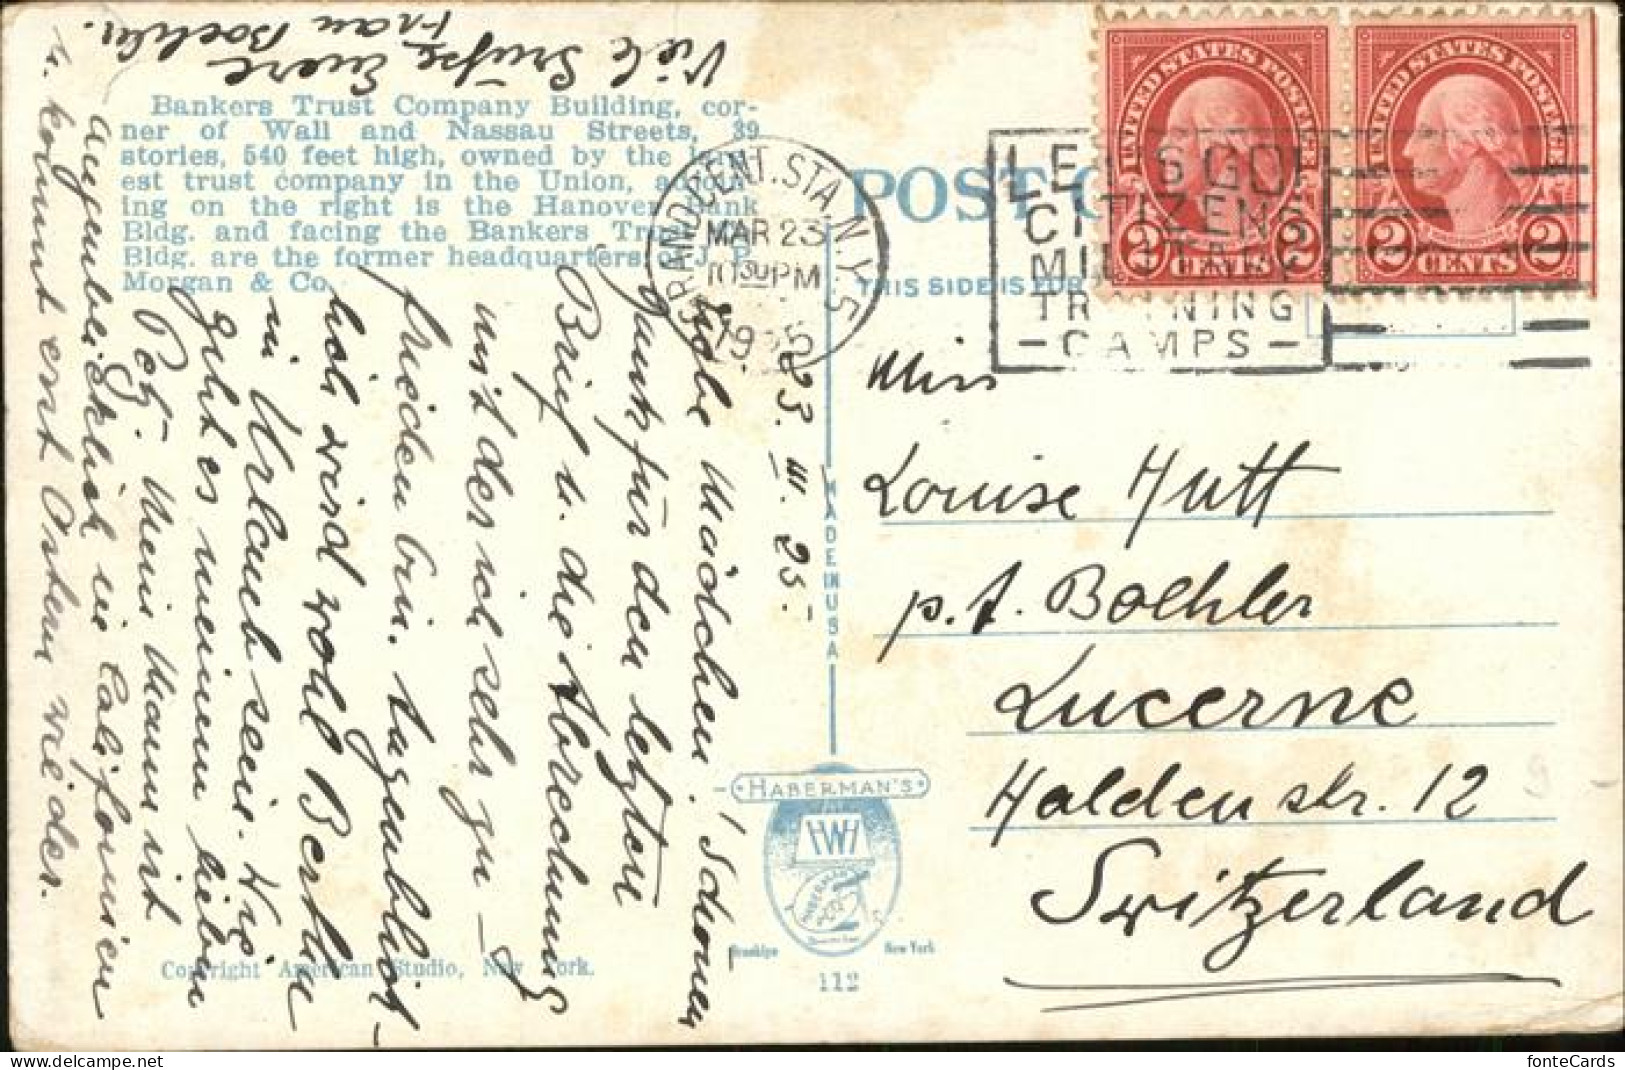 Viele Grüsse Euere
Frau Boehler.
Bankers Trust Company Building, cor-
ner of Wall and Nassau Streets, 39
stories, 540 feet high, owned by the larg-
est trust company in the Union, adjoin-
ing on the right is the Hanover Bank
Bldg. and facing the Bankers Trust
Bldg. are the former headquarters of J. P.
Morgan & Co.
23. III. 25.-
Liebe Mädchen! Schönen
Dank für den letzten
Brief u. die Abrechnung
mit der ich sehr zu-
frieden bin. Augenblick-
lich wird wohl Bertha
in Urlaub sein. Wie
geht es meinem lieben
Pet. Mein Mann ist
augenblicklich in Californien
u. kommt erst Ostern wieder.
Copyright American Studio, New York.
GRAND CENT. STA. N.Y.
MAR 23
10 30 PM
1925
5
LET'S GO!
CITIZENS
MILITARY
TRAINING
- CAMPS -
UNITED STATES POSTAGE
2 CENTS 2
UNITED STATES POSTAGE
2 CENTS 2
POST C
THIS SIDE IS FOR
MADE IN U S A
HABERMAN'S
Brooklyn New York
112
Miss
Louise Hutt
p. A. Boehler
Lucerne
Haldenstr. 12
Switzerland
fonteCards